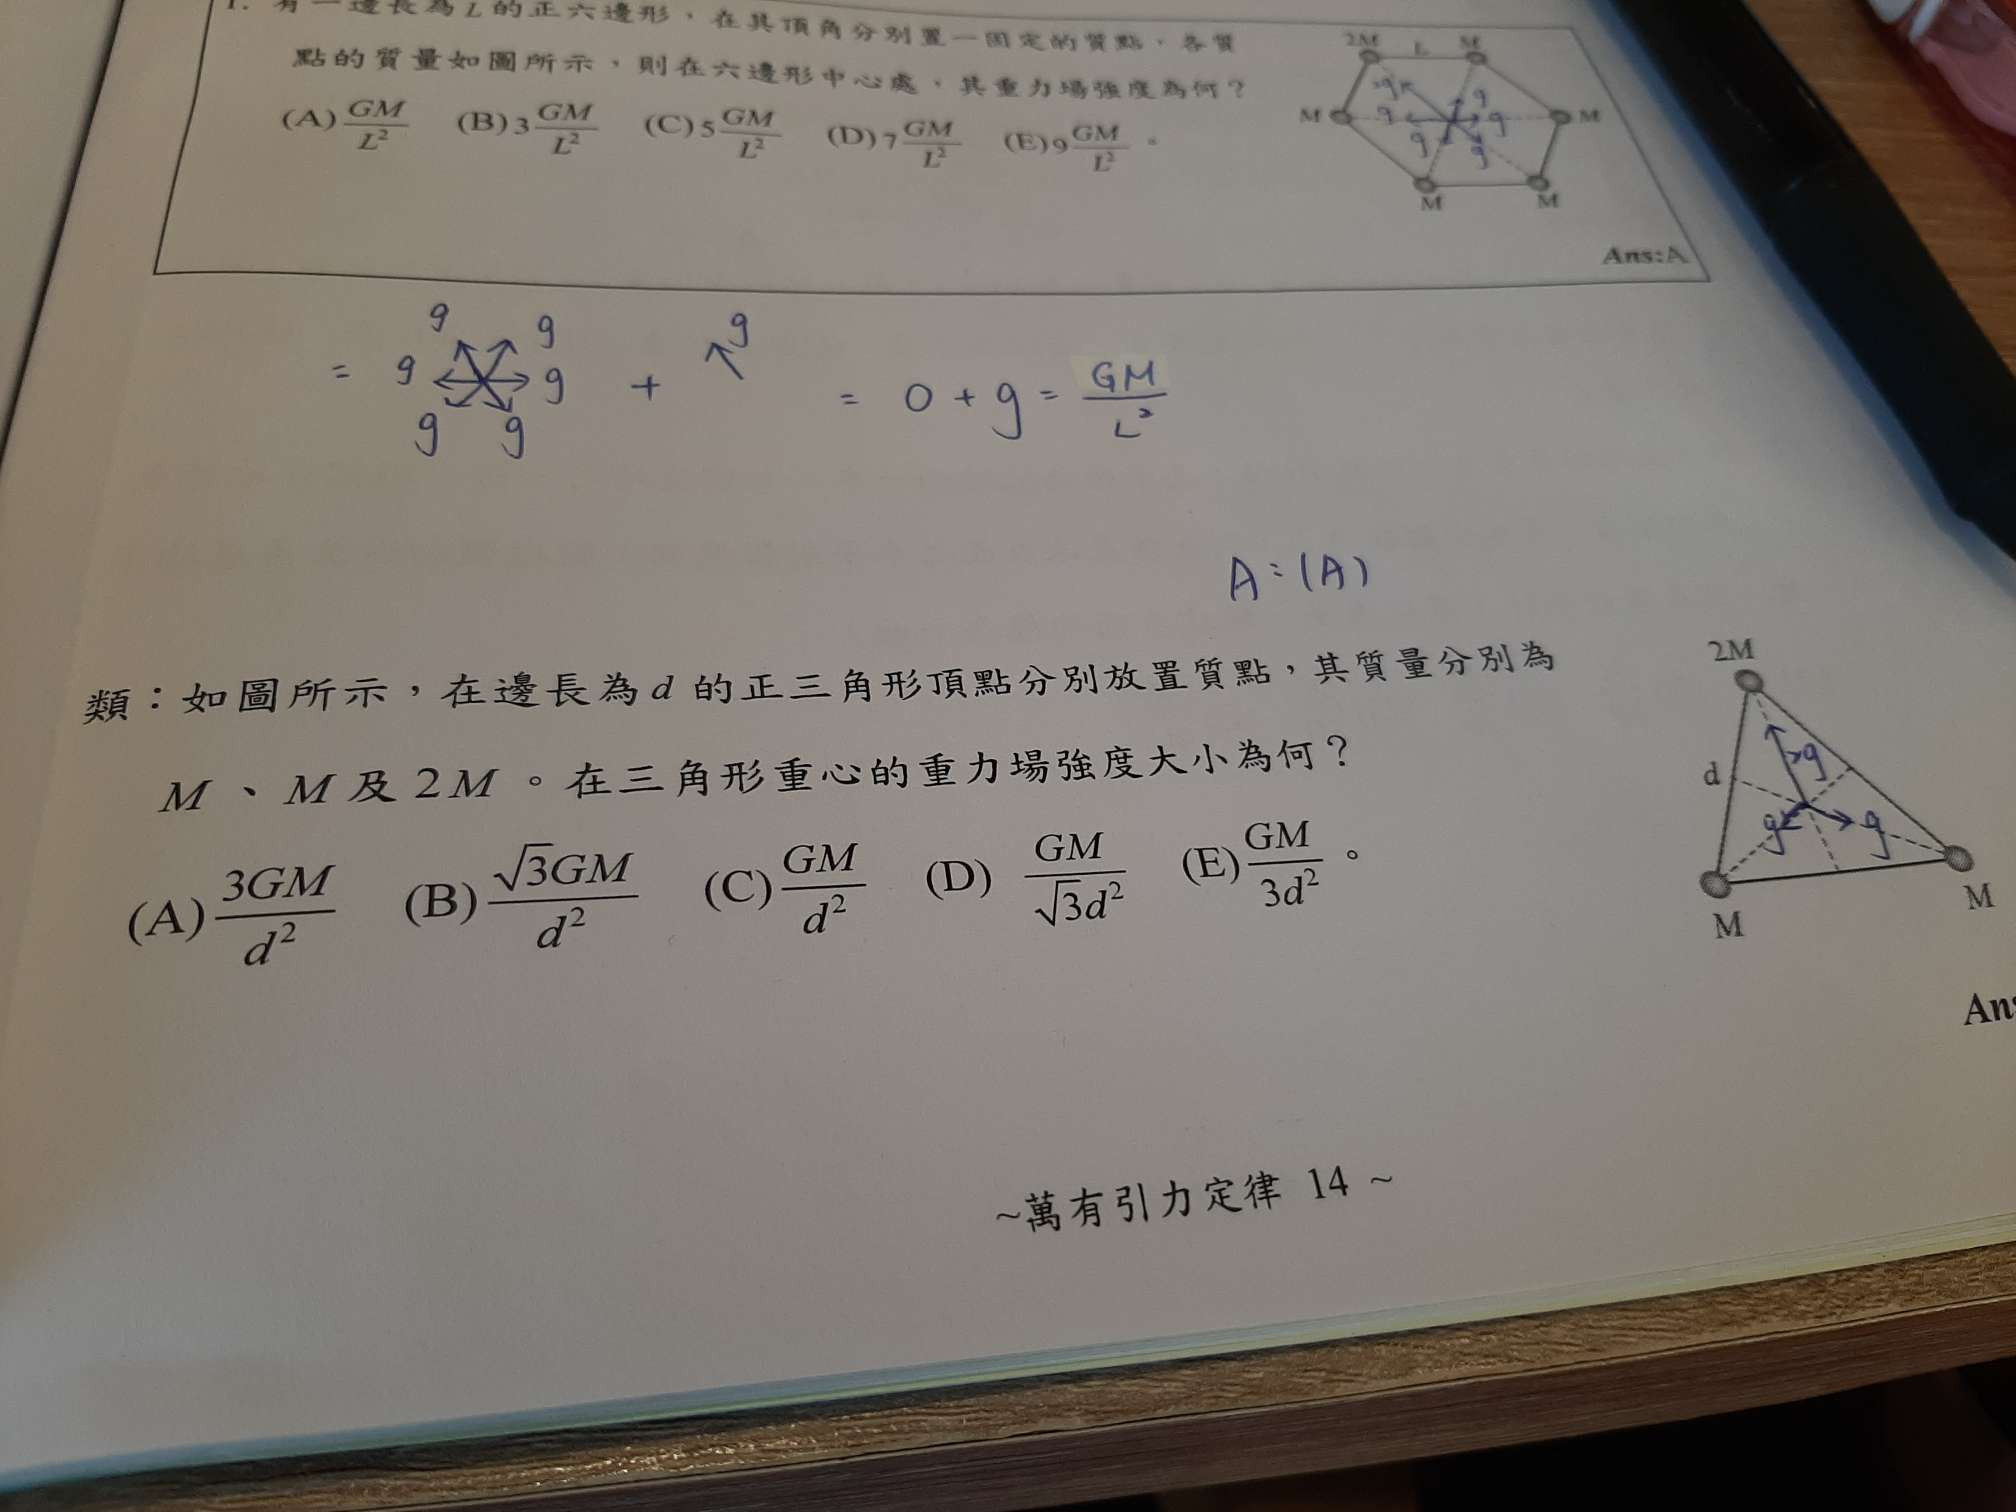 1. 有一邊長為 L 的正六邊形，在其頂角分別置一固定的質點，各質
點的質量如圖所示，則在六邊形中心處，其重力場強度為何？
(A) GM/L² (B) 3 GM/L² (C) 5 GM/L² (D) 7 GM/L² (E) 9 GM/L² 。
2M L M
M g g g M
g g
M M
Ans:A
= g g g g g g + g = 0 + g = GM/L²
A = (A)
類：如圖所示，在邊長為 d 的正三角形頂點分別放置質點，其質量分別為
M 、 M 及 2M 。在三角形重心的重力場強度大小為何？
(A) 3GM/d² (B) √3GM/d² (C) GM/d² (D) GM/√3d² (E) GM/3d² 。
2M
d 2g
g g
M M
Ans
~萬有引力定律 14 ~